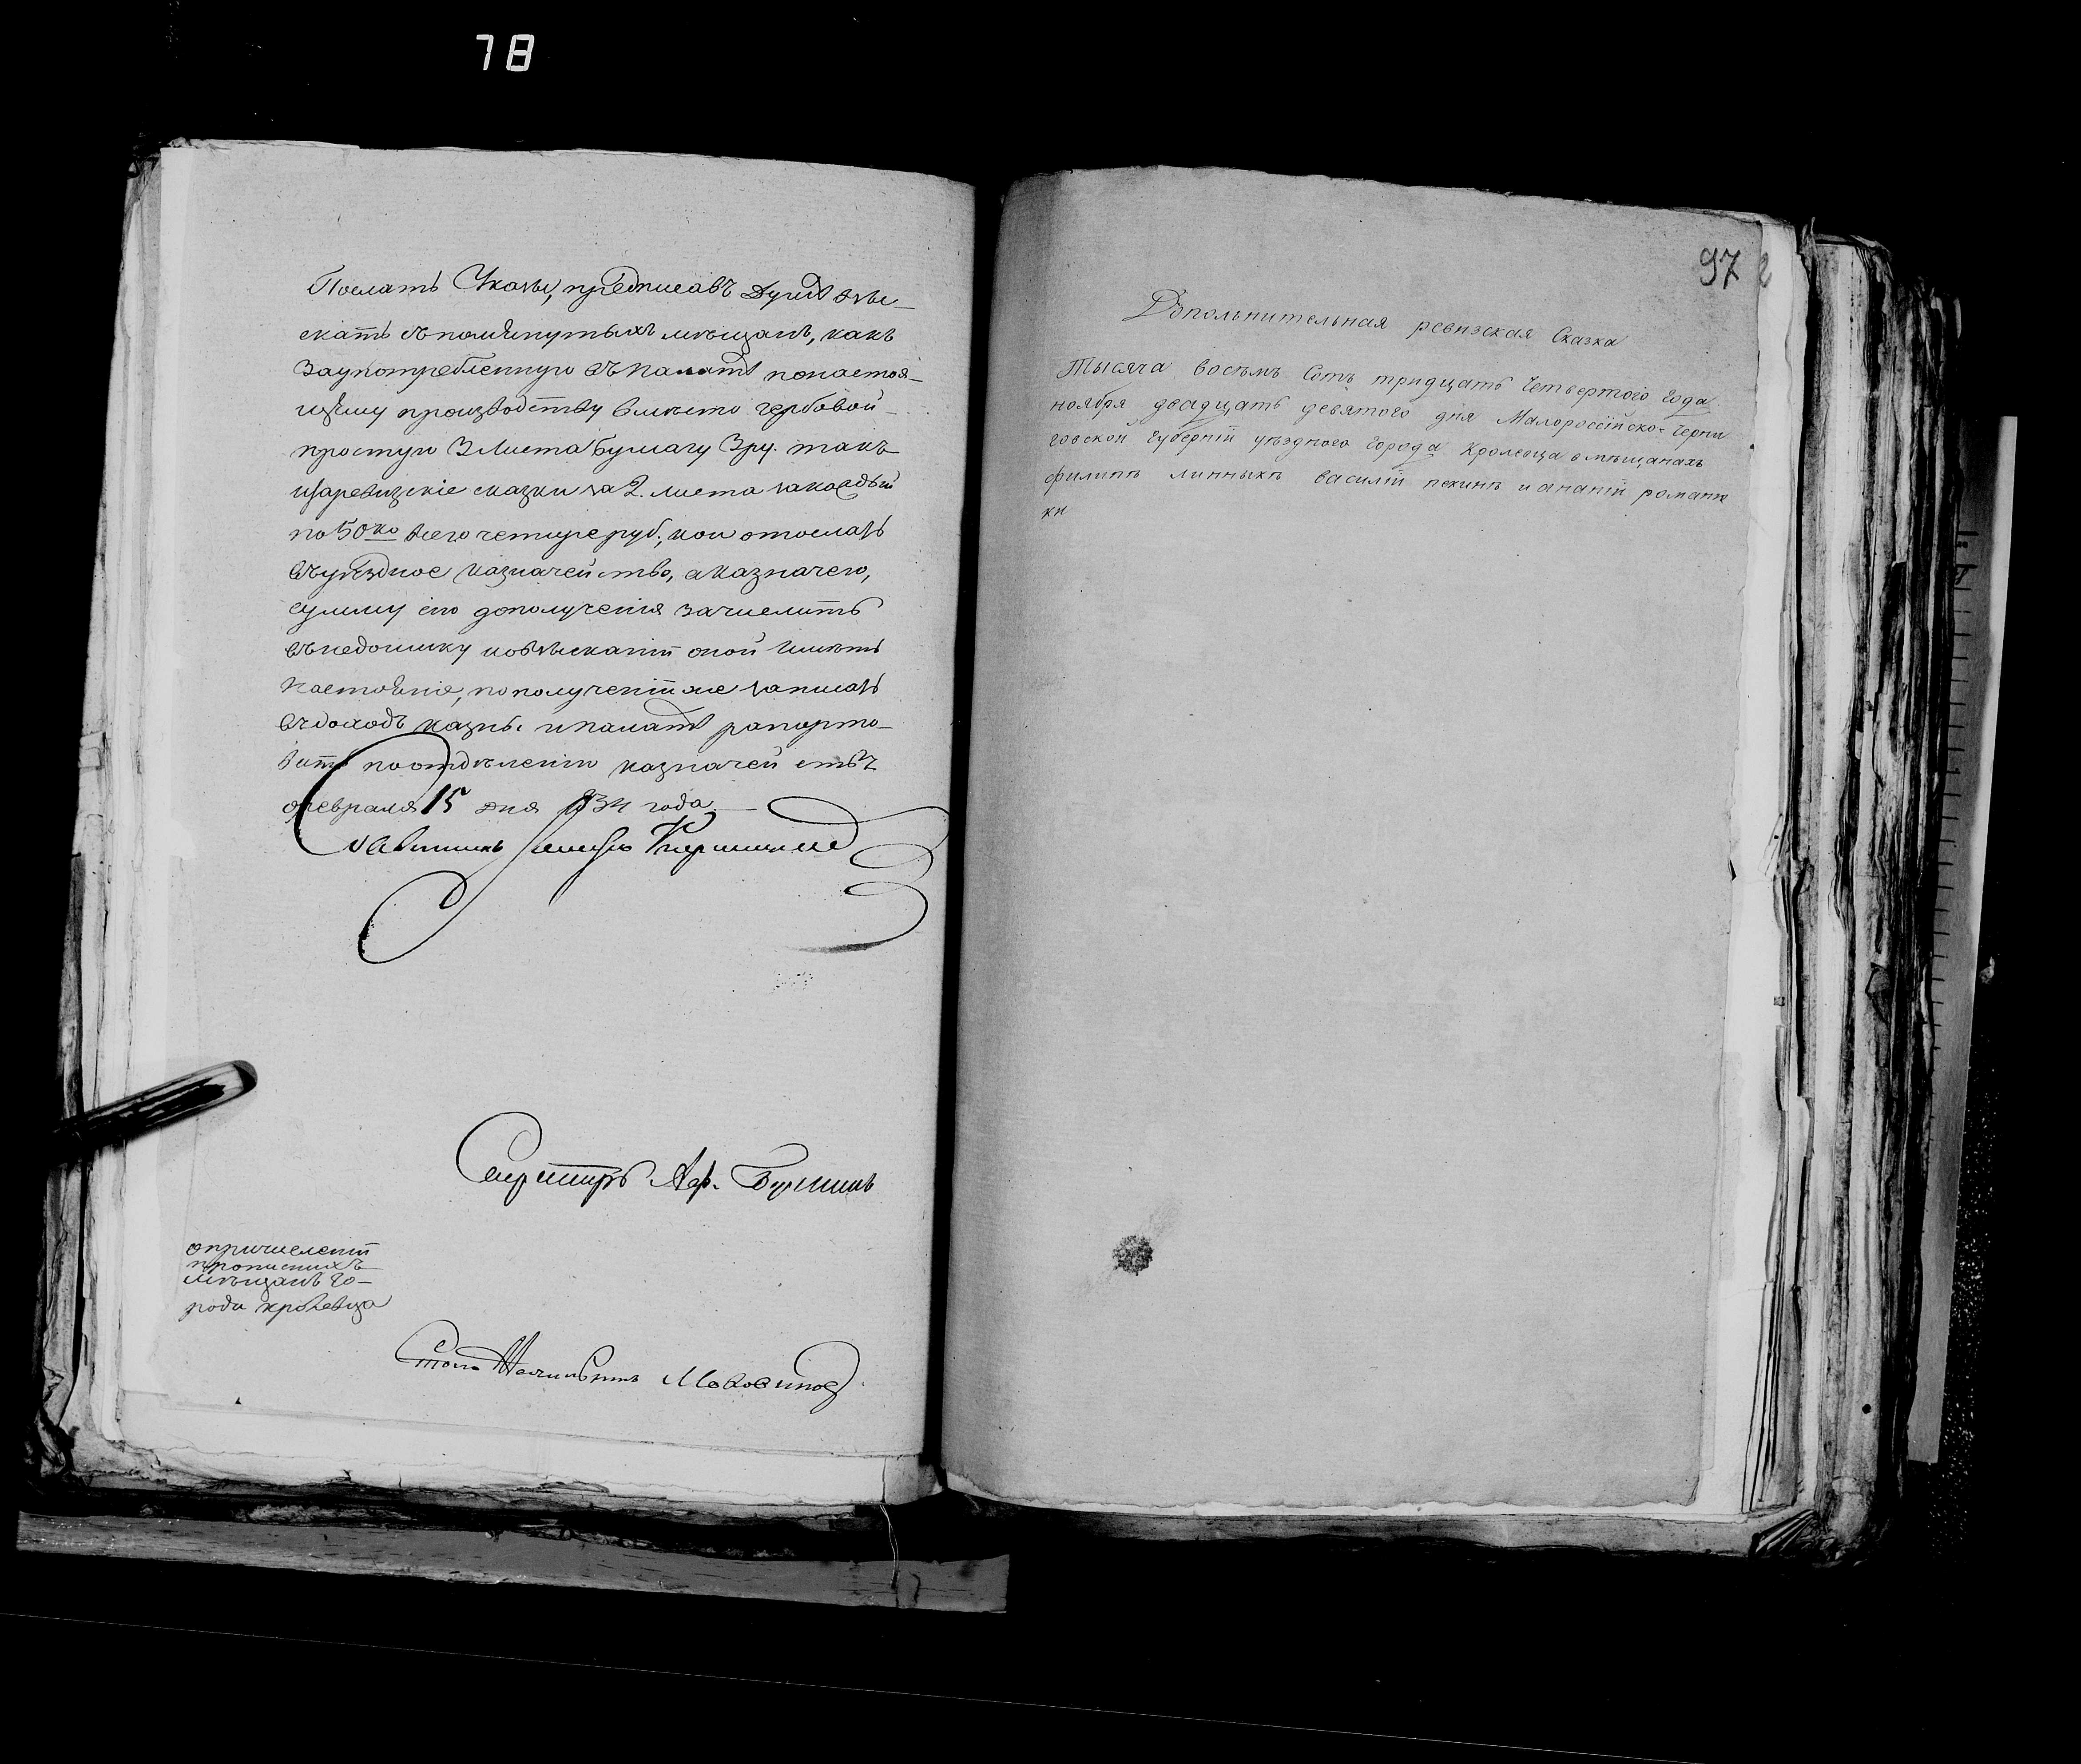 78
Послать Указы, предписавъ Думѣ взы-
скать съ помянутыхъ мѣщанъ, какъ
за употребленную въ палатѣ по настоя-
щему производству вмѣсто гербовой
простую 3 листа бумагу 3 ру. такъ
и за ревизскіе сказки за 2. листа за каждый
по 50 ко всего четыре руб; кои отослать
въ уѣздное казначейство, а казначею,
сумму сію до полученія зачислить
въ недоимку и о взысканіи оной имѣть
настояніе, по полученіи же записать
въ доходъ казны и палатѣ рапорто-
вать по отдѣленію казначействъ
февраля 15 дня 834 года
Секретарь Аф.
о причисленіи
прописныхъ
мѣщанъ го-
рода кролевца
Столоначальникъ
97
Допольнительная ревизская Сказка
Тысяча восѣмъ Сотъ тридцать Четвертого Года
ноября двадцать девятого дня Малороссійско-Черни
говской Губерніи уѣздного Города Кролевца о мѣщанахъ
филипѣ линныхъ василій пехинъ и ананій романѣ
ки